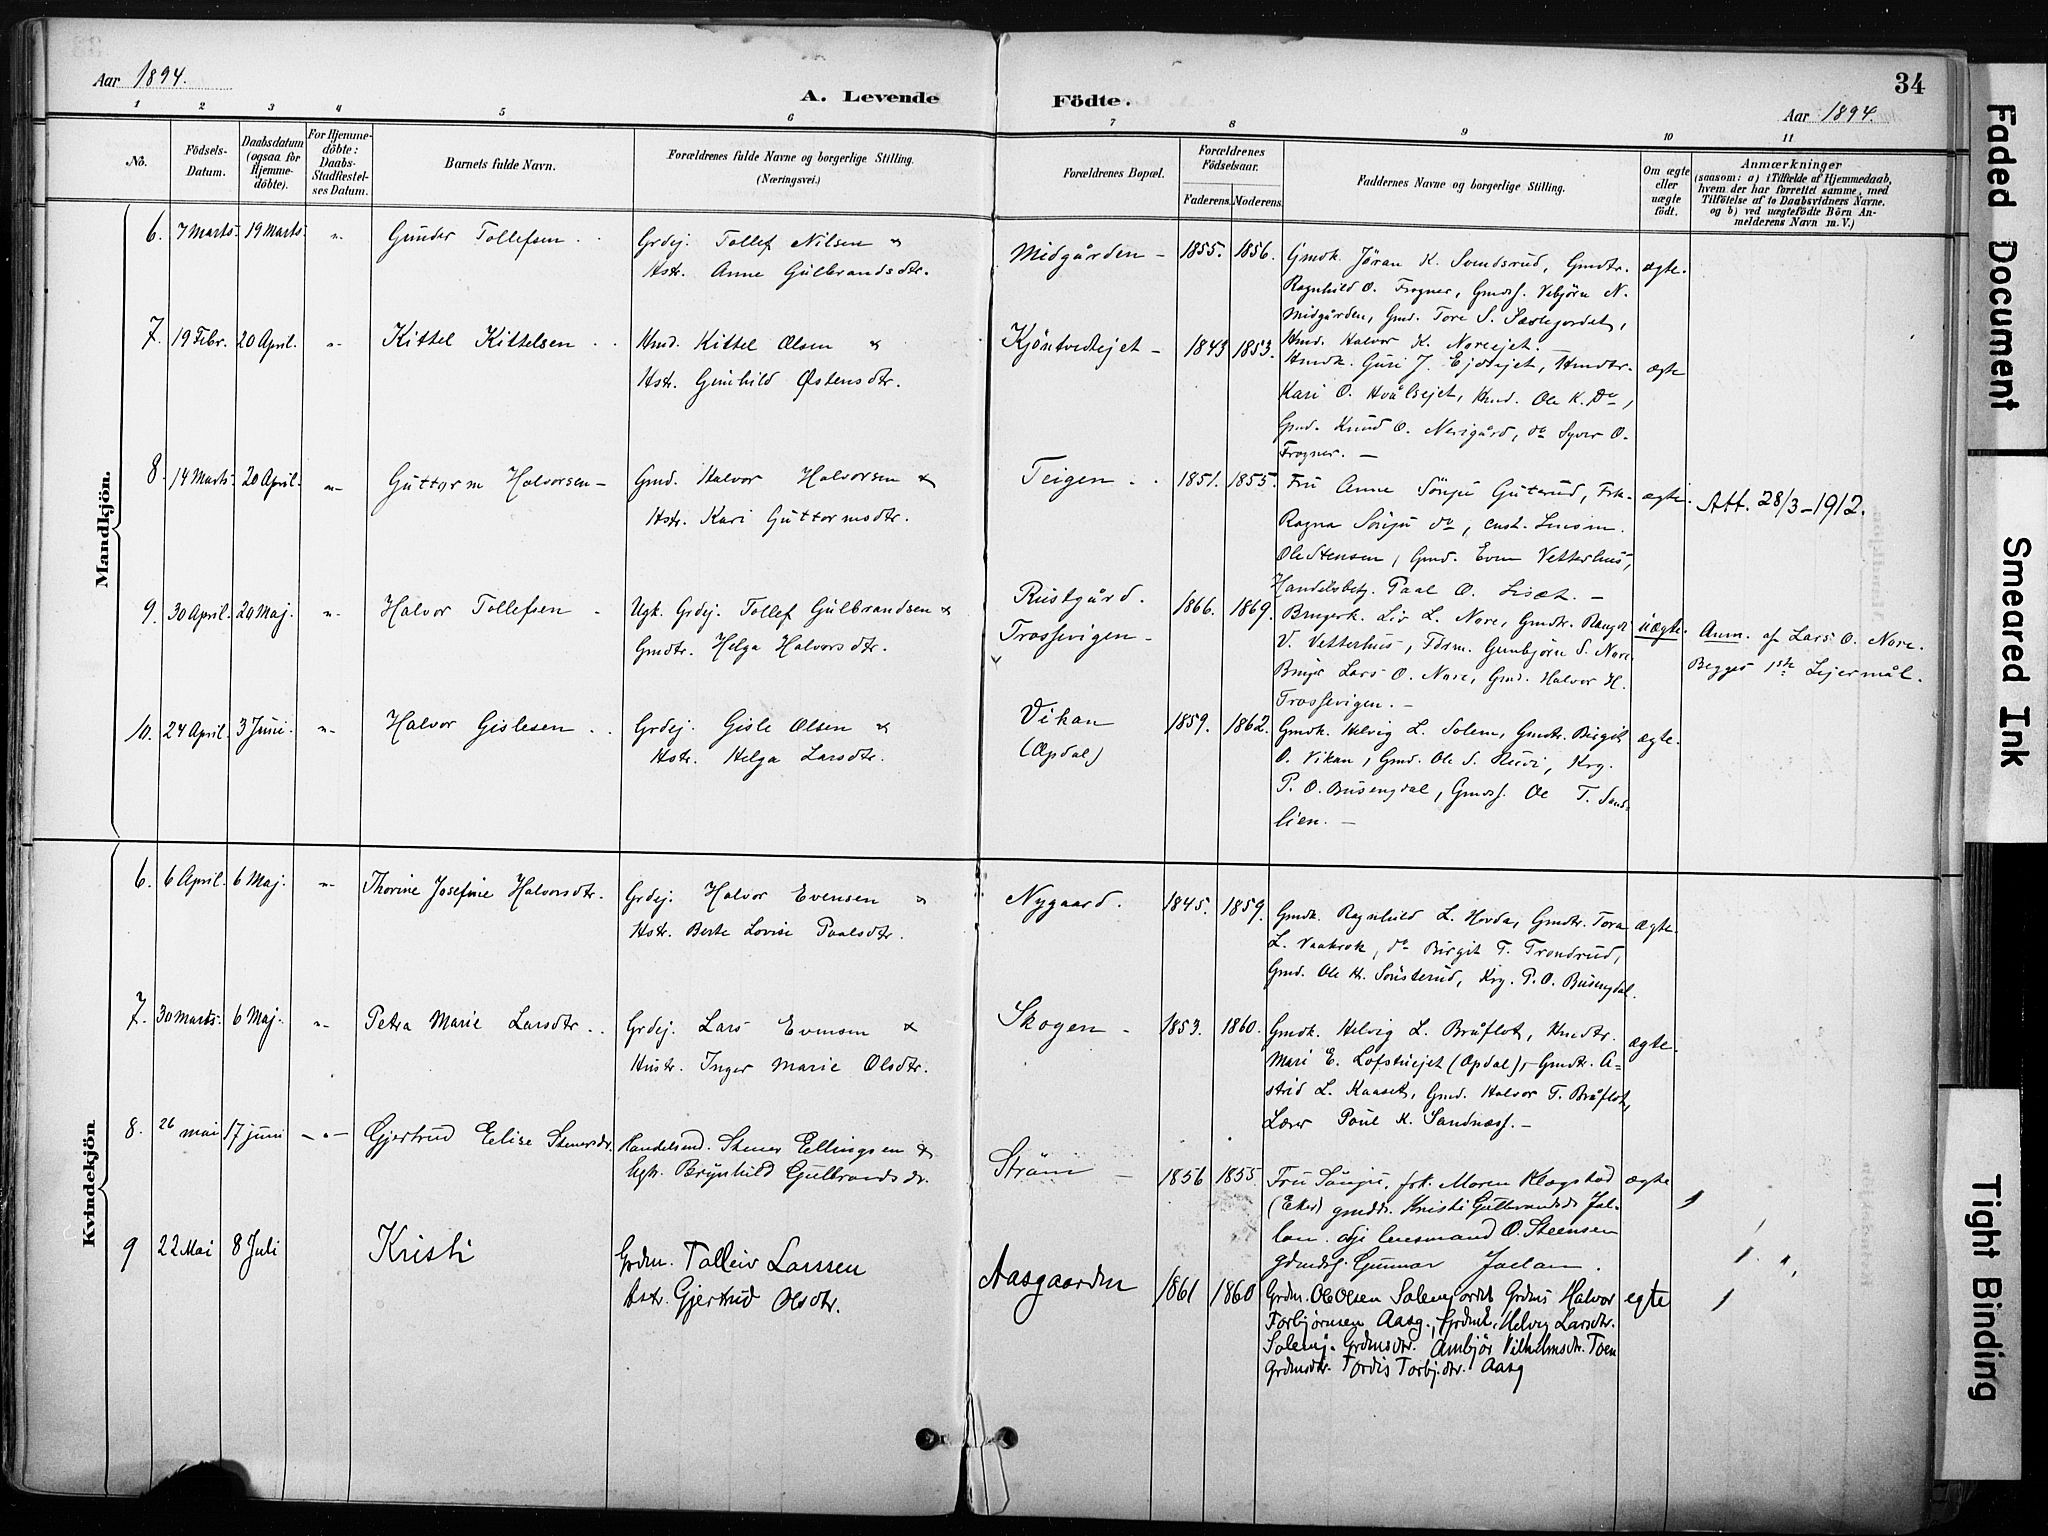 Aar 1894.
A. Levende Födte.
34
Aar 1894.
1 2 3 4 5 6 7 8 9 10 11
No.
Födsels-Datum.
Daabsdatum (ogsaa for Hjemme-döbte).
For Hjemme-döbte: Daabs-Stadfæstel-ses Datum.
Barnets fulde Navn.
Forældrenes fulde Navne og borgerlige Stilling.
(Næringsvei.)
Forældrenes Bopæl.
Forældrenes Födselsaar.
Faderens. Moderens.
Faddernes Navne og borgerlige Stilling.
Om ægte eller uægte födt.
Anmærkninger
(saasom: a) i Tilfælde af Hjemmedaab,
hvem der har forrettet samme, med
Tilföielse af to Daabsvidners Navne.
og b) ved uægtefödte Börn An-
melderens Navn m. V.)
Mandkjön.
6. 7 Marts. 19 Marts. " Gunder Tollefsen Grdej. Tollef Nilsen &
Hstr. Anne Gulbrandsdtr.
Midgården – 1855. 1856.
Gmdk. Jöran K. Svendsrud, Gmdtr.
Ragnhild O. Frogner, Gmdsf. Vebjörn N.
Midgården, Gmd. Tore S.
Hmd. Halvor K.
ægte.
7. 19 Febr. 20 April. " Kittel Kittelsen Hmd. Kittel Olsen &
Hstr. Gunhild Østensdtr.
Kjöntvedtejet – 1843 1853.
Hmdk. Guri J. Hmdtr.
Kari O. Hvålsejet, Hmd. Ole K. Do,
Gmd. Knud O. Nerigård, do Syver O.
Frogner. –
ægte
8. 14 Marts. 20 April. " Guttorm Halvorsen – Gmd. Halvor Halvorsen &
Hstr. Kari Guttormsdtr.
Teigen 1851. 1855.
Fru Anne Sönju Guterud, Frk.
Ragna Sönju do, const. Lensm.
Ole Stensen, Gmd. Even Vetterhus,
Handelsbetj. Paal O. Liset. –
ægte.
Att. 28/3–1912.
9. 30 April. 20 Maj. " Halvor Tollefsen Ugk. Grdej. Tollef Gulbrandsen &
Gmdtr. Helga Halvorsdtr.
Rustgård.
Trossevigen –
1866. 1869.
Brugerk. Liv L. Nore, Gmdtr.
V. Vetterhus, Form. Gunbjörn S. Nore
Lars O. Nore, Gmd. Halvor H.
Trossevigen. –
uægte.
Anm. af Lars O. Nore.
Begges 1ste Lejermål.
10. 24 April. 3 Juni. " Halvor Gislesen Grdej. Gisle Olsen &
Hstr. Helga Larsdtr.
Vikan
(Opdal)
1859. 1862.
Gmdk. Helvig L. Solem, Gmdtr. Birgit
O. Vikan, Gmd. Ole S. Ruvi, Krg.
P. O. Busengdal, Gmdsf. Ole T. Sand-
lien. –
ægte.
Kvindekjön
6. 6 April. 6 Maj. " Thorine Josefine Halvorsdtr. Grdej. Halvor Evensen &
Hstr. Berte Lovise Paalsdtr.
Nygaard. 1845. 1859.
Gmdk. Ragnhild L. Hovda, Gmdtr. Tora
L. Vaakrok, do Birgit T. Trondrud,
Gmd. Ole H. Sönsterud, Krg. P. O. Busengdal.
ægte.
7. 30 Marts. 6 Maj. " Petra Marie Larsdtr. Grdej. Lars Evensen &
Hustr. Inger Marie Olsdtr.
Skogen – 1853. 1860.
Gmdk. Helvig L. Bråflot, Hmdtr.
Mari E. Lofstuejet (Opdal), Gmdtr. A-
strid L. Kaaset, Gmd. Halvor T. Bråflot,
Lærer Poul K. Sandnæss. –
ægte.
8. 26 mai 17 juni – " – Gjertrud Elise Stenersdr. Handelsmd. Stener Ellingsen &
Brynhild Gulbrandsdr.
Ström – 1856 1855
Fru Sönju, frk. Maren Klagstad
(Eker) gmddr. Kristi Gulbrandsdr Jal-
lan. lensmand O. Steensen
gdmdsf. Gunnar Joelan.
ægte
9 22 Mai 8 Juli Kristi Grdm. Talleiv Larssen
Hstr. Gjertrud Olsdtr.
Aasgaarden 1861 1860
Grdm. Ole Olsen Solemjordet Grdms Halvor
Torbjørnsen Aasg., Grdmk. Helvig Larsdtr.
Solemj. Grdmsdtr. Ambjør Vilhelmsdtr. Toen
Grdmsdtr. Tordis Torbj.dtr. Aasg
egte
Faded Document
Smeared Ink
Tight Binding